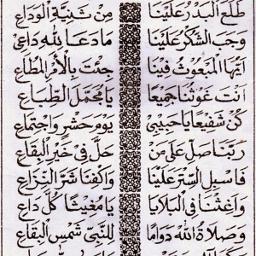 طَلَعَ الْبَدْرُ عَلَيْنَا مِنْ ثَنِيَّةِ الْوَدَاعِ
وَجَبَ الشُّكْرُ عَلَيْنَا مَا دَعَا لِلّٰهِ دَاعِي
اَيُّهَا الْمَبْعُوْثُ فِيْنَا جِئْتَ بِالْاَمْرِ الْمُطَاعِ
اَنْتَ غَوْثُنَا جَمِيْعًا يَا مُجَمَّلَ الطِّبَاعِ
كُنْ شَفِيْعًا يَا حَبِيْبِيْ يَوْمَ حَشْرٍ وَاجْتِمَاعِ
رَبَّنَا صَلِّ عَلٰى مَنْ حَلَّ فِيْ خَيْرِ الْبِقَاعِ
فَاسْبِلِ السِّتْرَ عَلَيْنَا وَاكْفِنَا شَرَّ النِّزَاعِ
وَاغِثْنَا فِي الْبَلَايَا يَا مُغِيْثًا كُلَّ دَاعِ
وَصَلَاةُ اللهِ دَوَامًا لِلنَّبِيِّ شَمْسِ الْبِقَاعِ